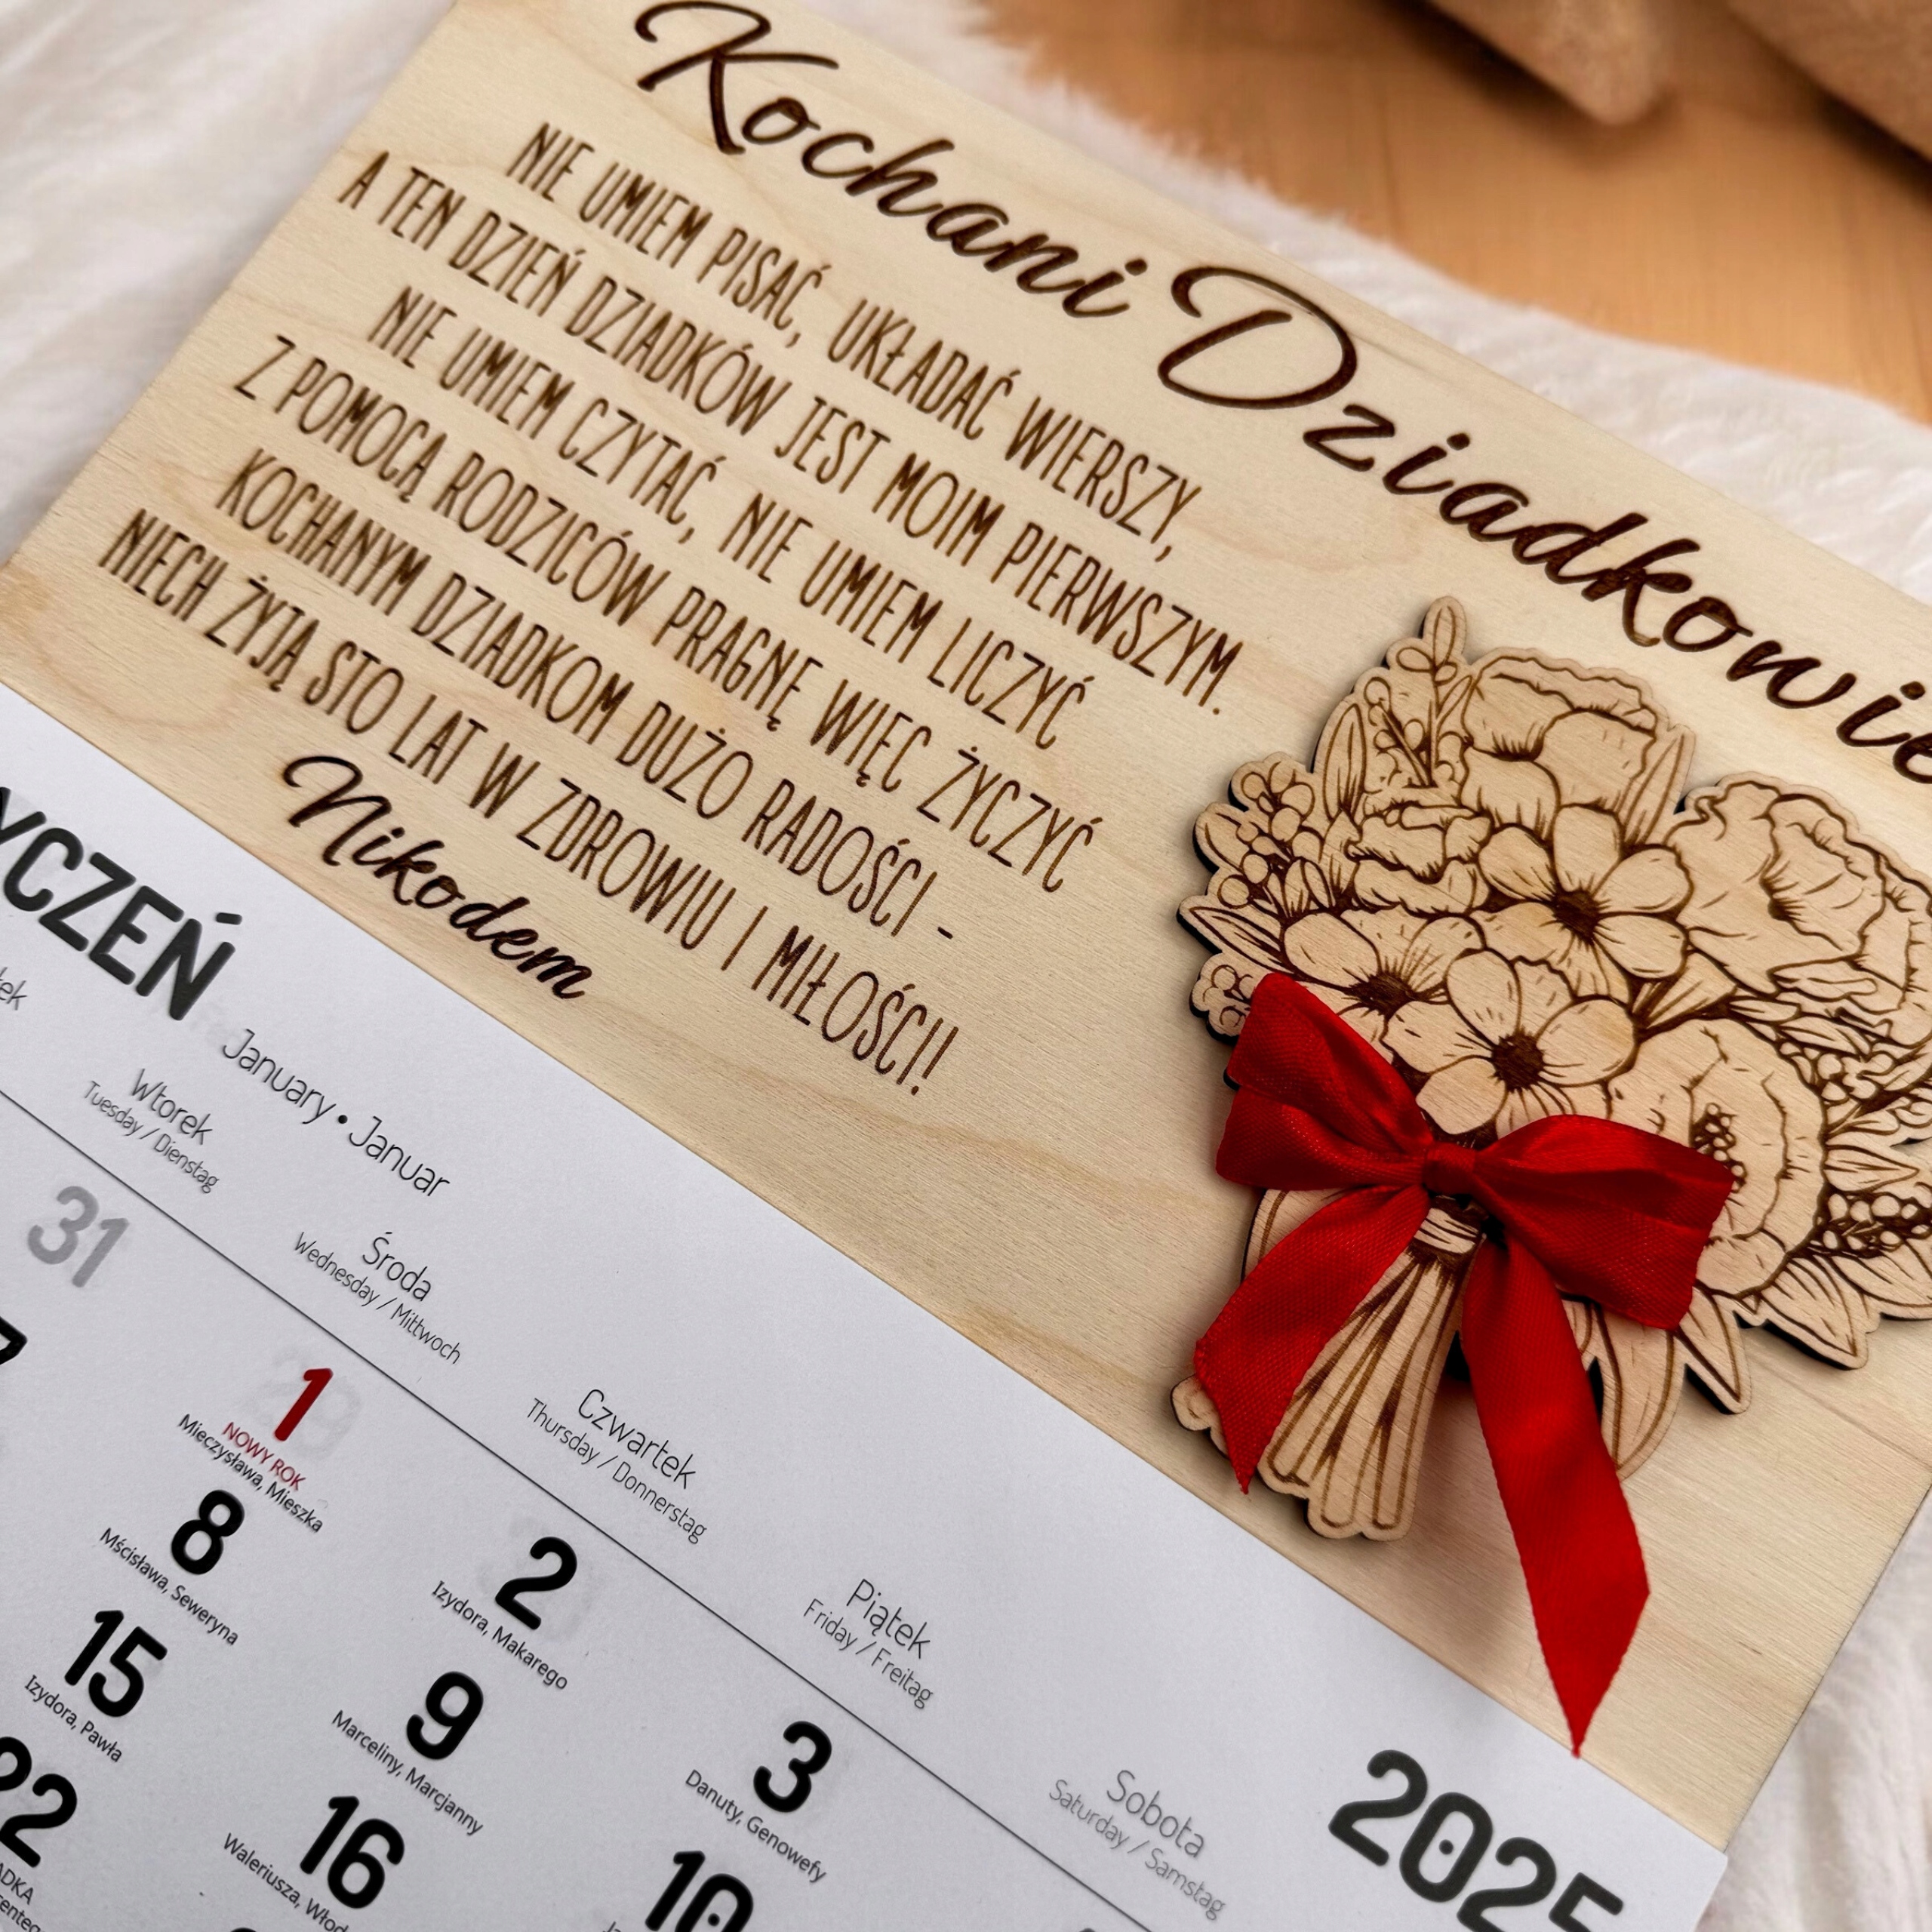 Kochani Dziadkowie
NIE UMIEM PISAĆ, UKŁADAĆ WIERSZY,
A TEN DZIEŃ DZIADKÓW JEST MOIM PIERWSZYM.
NIE UMIEM CZYTAĆ, NIE UMIEM LICZYĆ
Z POMOCĄ RODZICÓW PRAGNĘ WIĘC ŻYCZYĆ
KOCHANYM DZIADKOM DUŻO RADOŚCI -
NIECH ŻYJĄ STO LAT W ZDROWIU I MIŁOŚCI!
Nikodem
YCZEŃ January • Januar 2025
Wtorek
Tuesday / Dienstag
Środa
Wednesday / Mittwoch
Czwartek
Thursday / Donnerstag
Piątek
Friday / Freitag
Sobota
Saturday / Samstag
31
1
NOWY ROK
Mieczysława, Mieszka
2
Izydora, Makarego
3
Danuty, Genowefy
7
8
Mścisława, Seweryna
9
Marceliny, Marcjanny
10
15
Izydora, Pawła
16
Waleriusza, Włod
22